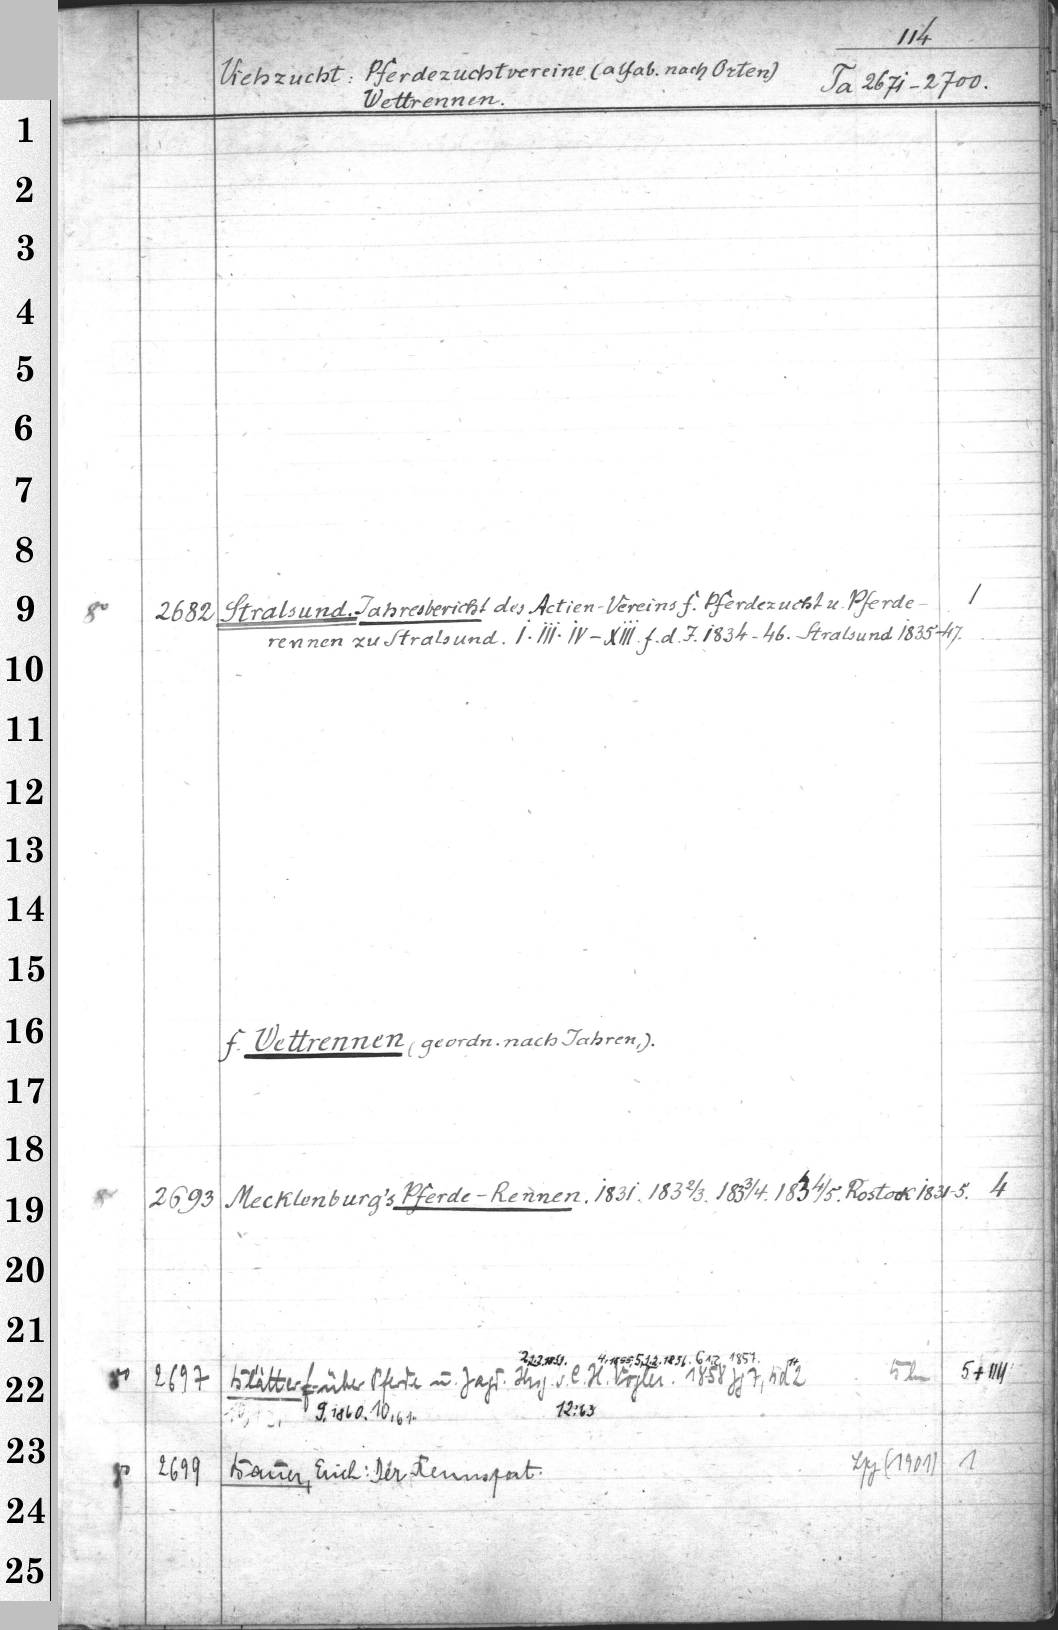 114
Viehzucht: Pferdezuchtvereine (alfab. nach Orten) Ta 2671-2700.
Wettrennen.
1
2
3
4
5
6
7
8
9 8° 2682 Stralsund. Jahresbericht des Actien-Vereins f. Pferdezucht u. Pferde- 1
rennen zu Stralsund. I. III. IV-XIII f. d. J. 1834-46. Stralsund 1835-47.
10
11
12
13
14
15
16 f. Wettrennen (geordn. nach Jahren,).
17
18
19 8° 2693 Mecklenburg's Pferde-Rennen. 1831. 1832/3. 1833/4. 1834/5. Rostock 1831-5. 4
20
21
22 8° 2697 Blätter f. über Pferde u. Jagd. Hrsg. v. C. H. Vogler. 1858 Jg 7, Bd 2 Bln 5+
9. 1860. 10, 61. 12:63
23 8° 2699 Bauer, Erich: Der Rennsport. Lpz (1901) 1
24
25